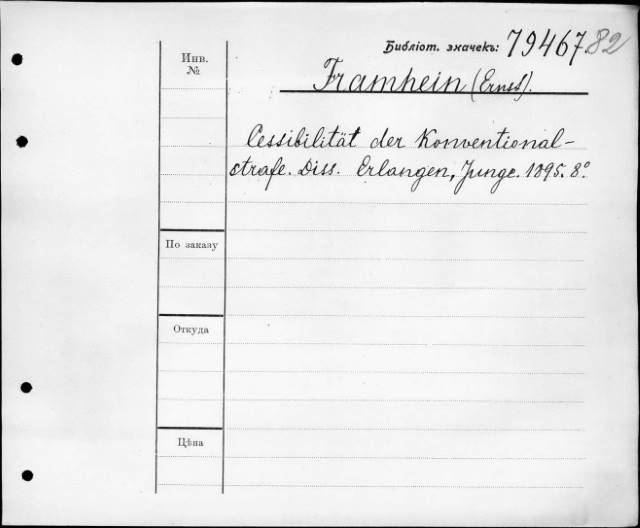 Библіот. значекъ: 79467.82
Инв.
№
Framhein (Ernst).
Cessibilität der Konventional-
strafe. Diss. Erlangen, Junge. 1895. 8°.
По заказу
Откуда
Цѣна